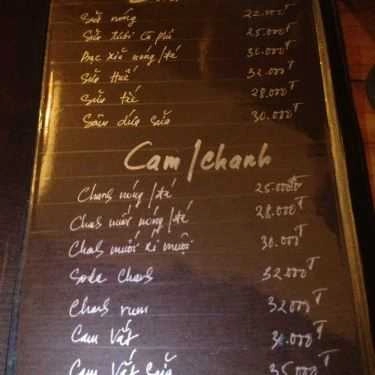 Sữa nóng 22.000đ
Sữa tươi Cà phê 25.000đ
Bạc xỉu nóng/đá 30.000đ
Sữa 32.000đ
Sữa 28.000đ
Sâm dứa sữa 30.000đ
Cam/chanh
Chanh nóng/đá 25.000đ
Chanh mật nóng/đá 28.000đ
Chanh muối xí muội 30.000đ
Soda Chanh 32.000đ
Chanh rum 32.000đ
Cam Vắt 30.000đ
Cam Vắt Sữa 35.000đ